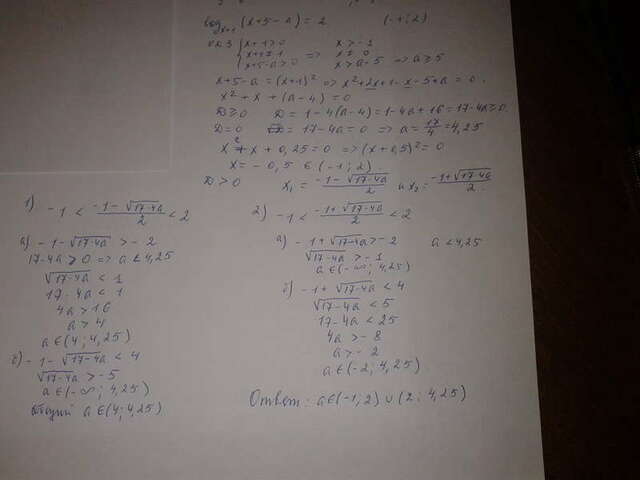 log x+1 (x+5-a) = 2 (-1; 2)
ОДЗ { x+1>0 x > -1
x+1≠1 => x ≠ 0
x+5-a>0 x > a-5 => a ≥ 5
x+5-a = (x+1)² => x²+2x+1-x-5+a = 0.
x² + x + (a-4) = 0
D≥0 D = 1-4(a-4) = 1-4a+16 = 17-4a ≥ 0
D=0 = 17-4a = 0 => a = 17/4 = 4,25
x² + x + 0,25 = 0 => (x+0,5)² = 0
x = -0,5 ∈ (-1; 2).
D > 0 x₁ = (-1-√(17-4a))/2 и x₂ = (-1+√(17-4a))/2
1) -1 < (-1-√(17-4a))/2 < 2
а) -1-√(17-4a) > -2
17-4a > 0 => a < 4,25
√(17-4a) < 1
17-4a < 1
4a > 16
a > 4
a ∈ (4; 4,25)
б) -1-√(17-4a) < 4
√(17-4a) > -5
a ∈ (-∞; 4,25)
общий a ∈ (4; 4,25)
2) -1 < (-1+√(17-4a))/2 < 2
а) -1+√(17-4a) > -2 a < 4,25
√(17-4a) > -1
a ∈ (-∞; 4,25)
б) -1+√(17-4a) < 4
√(17-4a) < 5
17-4a < 25
4a > -8
a > -2
a ∈ (-2; 4,25)
Ответ: a ∈ (-1; 2) ∪ (2; 4,25)